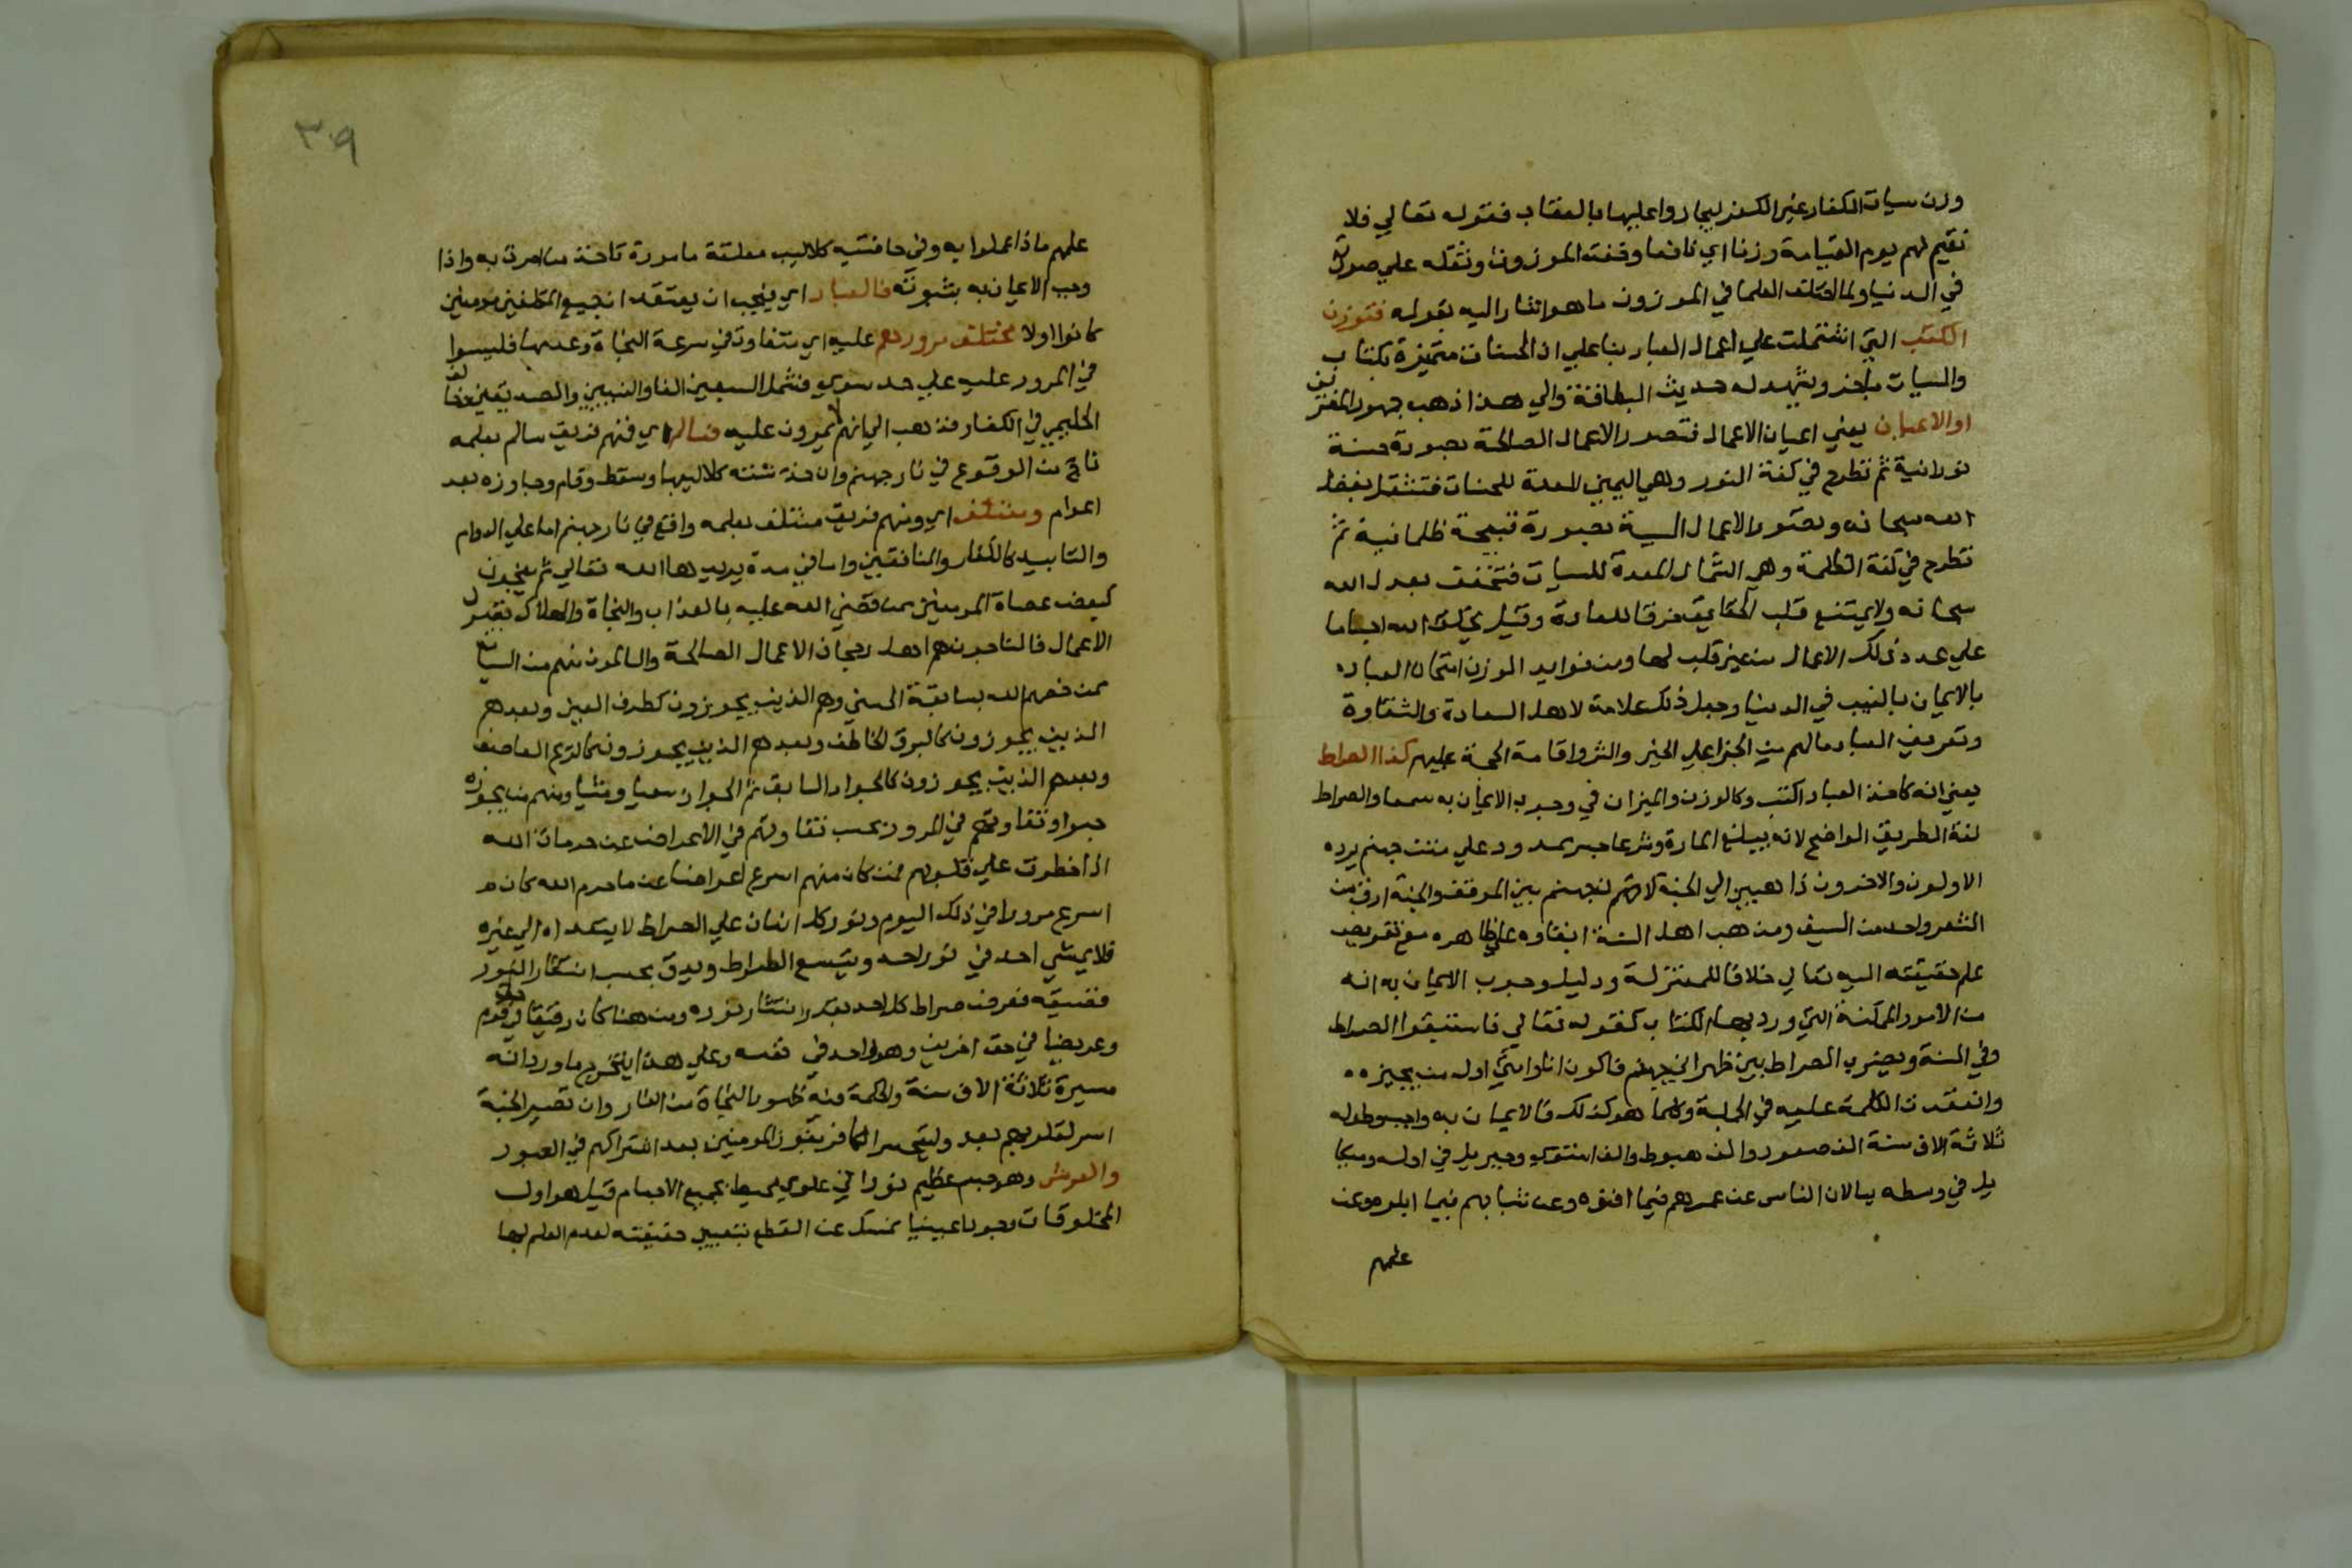 وزن سيات الكفار غير الكفر ليجازوا عليها بالعقاب فقوله تعالي فلا
نقيم لهم يوم القيامة وزنا اي نافعا وخفته الموزون وثقله علي صورته
في الدنيا ولما اختلف العلما في الموزون ما هو اشار اليه بقوله فتوزن
الكتب التي اشتملت علي اعمال العباد بنا علي ان الحسنات متميزة بكتاب
والسيات باخر ويشهد له حديث البطاقة والي هذا ذهب جمهور المفسرين
او الاعيان يعني اعيان الاعمال فتصور الاعمال الصالحة بصورة حسنة
نورانية ثم تطرح في كفة النور وهي اليمين المعدة للحسنات فتثقل بفضل
الله سبحانه وتصور الاعمال السية بصورة قبيحة ظلمانية ثم
تطرح في كفة الظلمة وهي الشمال المعدة للسيات فتخفف بعدل الله
سبحانه ولا يمتنع قلب الحقايق خرقا للعادة وقيل يخلق الله اجساما
علي عدد ذلك الاعمال من غير قلب لها ومن فوايد الوزن امتحان العباد
بالايمان بالغيب في الدنيا وجعل ذلك علامة لاهل السعادة والشقاوة
وتعريف العباد مالهم من الجزا علي الخير والشر واقامة الحجة عليهم كذا الصراط
يعني انه كاخذ العباد الكتب وكالوزن والميزان في وجوب الايمان به سمعا والصراط
لغة الطريق الواضح لانه يبلع المارة وشرعا جسر ممدود علي متن جهنم يرده
الاولون والاخرون ذاهبين الي الجنة لان جهنم بين الموقف والجنة ادق من
الشعر واحد من السيف ومذهب اهل السنة ابقاوه علي ظاهره مع تفويض
علم حقيقته اليه تعالي خلافا للمعتزلة ودليل وجوب الايمان به انه
من الامور الممكنة التي ورد بها الكتاب كقوله تعالي فاستبقوا الصراط
وفي السنة ويضرب الصراط بين ظهراني جهنم فاكون انا وامتي اول من يجيزه
واتفقت الكلمة عليه في الجملة وكلما هو كذلك فالايمان به واجب وطوله
ثلاثة الاف سنة الف صعود والف هبوط والف استوي وجبريل في اوله وميكا
يل في وسطه يسالان الناس عن عمرهم فيما افنوه وعن شبابهم فيما ابلوه وعن
علمهم
٣٠٩
علمهم ماذا عملوا به وفي حافتيه كلاليب معلقة مامورة تاخذ من امرت به واذا
وجب الايمان به بثبوته فالعباد اي فيجب ان يعتقد ان جميع المكلفين مومنين
كانوا اولا مختلف مرورهم عليه اي متفاوت في سرعة النجاة وعدمها فليسوا
في المرور عليه علي حد سوي فشمل السبعين الفا والنبيين والصديقين خلافا
الحليمي في الكفار فذهب الي انهم لا يمرون عليه فسالم اي فمنهم فريق سالم بعلمه
ناج من الوقوع في نار جهنم وان خدشته كلاليبها وسقط وقام وجاوزه بعد
اعوام ومنتلف اي ومنهم فريق منتلف بعلمه واقع في نار جهنم اما علي الدوام
والتابيد كالكفار والمنافقين واما في مدة يريدها الله تعالي ثم ينجون
كبعض عصاة المومنين ممن قضي الله عليه بالعذاب والنجاة والهلاك بقدر
الاعمال فالناجون هم اهل رجحان الاعمال الصالحة والسالمون منهم من السيات
ممن خصهم الله بسابقة الحسني وهم الذين يجوزون كطرف العين وبعدهم
الذين يجوزون كالبرق الخاطف وبعدهم الذين يجوزون كالريح العاصف
وبعدهم الذين يجوزون كالجواد السابق ثم الجواز سعيا ومشيا ومنهم من يجوزه
حبوا وتفاوتهم في المرور بحسب تفاوتهم في الاعراض عن حرمات الله
اذا خطرت علي قلوبهم فمن كان منهم اسرع اعراضا عن ما حرم الله كان
اسرع مرورا في ذلك اليوم ونور كل انسان علي الصراط لا يتعداه الي غيره
فلا يمشي احد في نور احد ويتسع الصراط ويدق بحسب انتشار النور
وضيقه فعرض صراط كل احد بقدر انتشار نوره ومن هنا كان رقيقا في حق قوم
وعريضا في حق اخرين وهو واحد في نفسه وعلي هذا يتخرج ما ورد انه
مسيرة ثلاثة الاف سنة والحكمة فيه ظهور النجاة من النار وان تصير الجنة
اسر لقلوبهم بعد وليتحسر الكافر بفوز المومنين بعد اشتراكهم في العبور
والعرش وهو جسم عظيم نوراني علوي محيط بجميع الاجسام قيل هو اول
المخلوقات وجودا عينيا نمسك عن القطع بتعيين حقيقته لعدم العلم بها